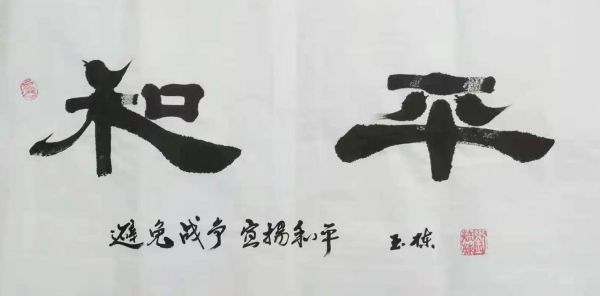 和平
避免战争 宣扬和平 玉栋